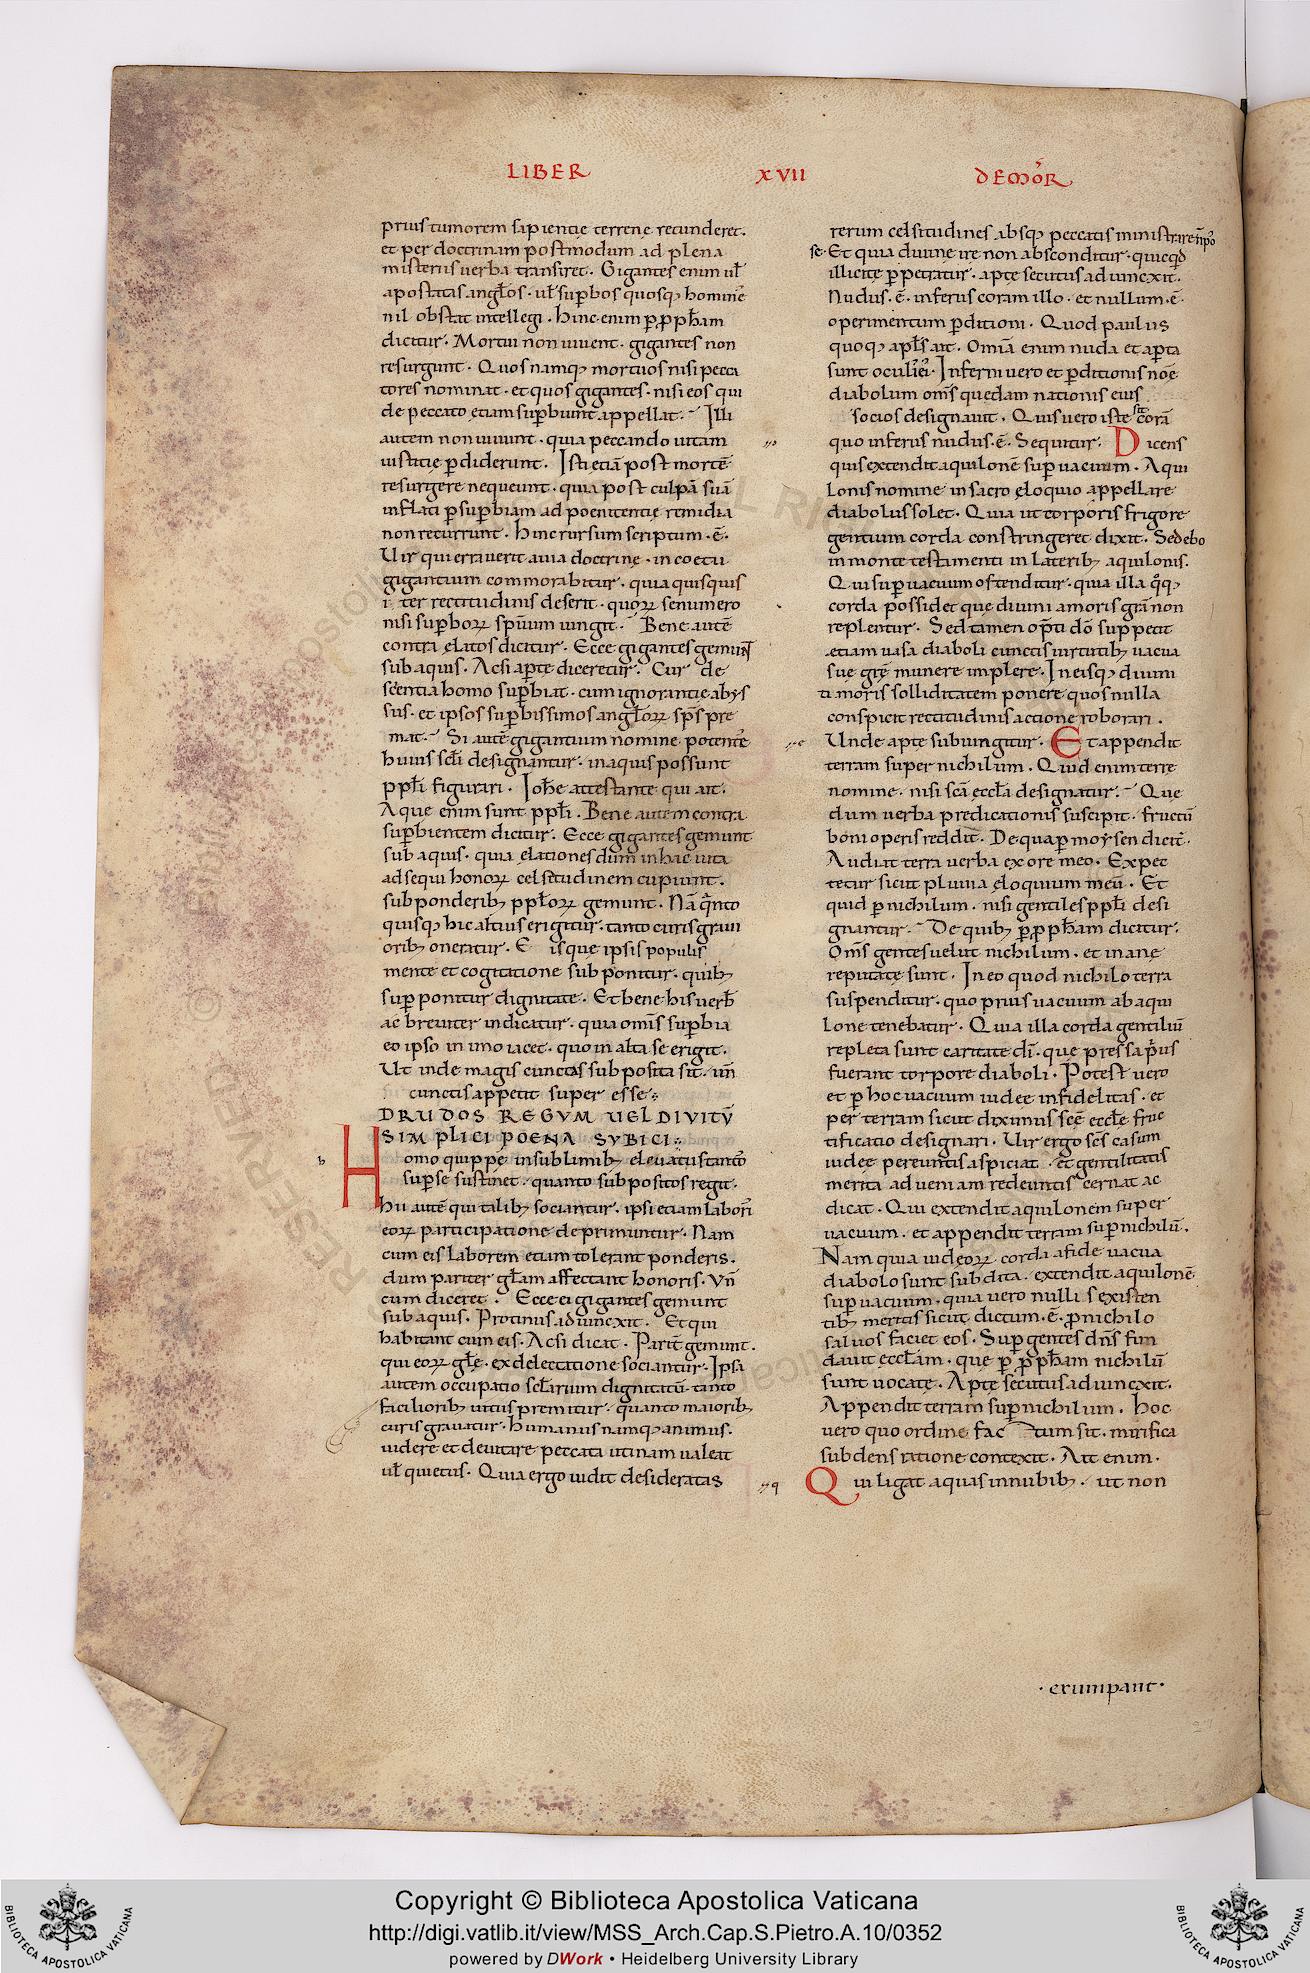 LIBER XVII DE MOR̄
prius tumorem sapientię terrenę recunderet.
et per doctrinam postmodum ad plena
misteriis uerba transiret. Gigantes enim ul̄
apostatas angl̄os. ul̄ suꝑbos quosq; homine᷒
nil obstat intellegi. hinc enim ꝑ ꝓph̄am
dicitur. Mortui non uiuent. gigantes non
resurgunt. Quos namq; mortuos nisi pecca
tores nominat. et quos gigantes. nisi eos qui
de peccato etiam suꝑbiunt appellat. Illi
autem non uiuunt. quia peccando uitam
iustitię ꝑdiderunt. Isti etiā post mortē
resurgere nequeunt. quia post culpā suā
inflati ꝑ suꝑbiam ad poenitentię remidia
non recurrunt. hinc rursum scriptum. ē.
Uir qui errauerit a uia doctrinę. in coetu
gigantium commorabitur. quia quisquis
i ter rectitudinis deserit. quoꝝ se numero
nisi suꝑboꝝ sp̄uum iungit. Bene autē
contra elatos dicitur. Ecce gigantes gemunt
sub aquis. Ac si aꝑte diceretur. Cur de
scientia homo suꝑbiat. cum ignorantię abys
sus. et ipsos suꝑbissimos angl̄oꝝ sp̄s pre
mat. Si autē gigantium nomine potente᷒
huius scl̄i designantur. in aquis possunt
ppl̄i figurari. Ioh̄e attestante qui ait.
Aque enim sunt ppl̄i. Bene autem contra
suꝑbientem dicitur. Ecce gigantes gemunt
sub aquis. quia elationes dum in hac uita
adsequi honoꝝ celsitudinem cupiunt.
sub ponderib; ppl̄oꝝ gemunt. Nā q̄nto
quisq; hic altius erigitur. tanto curis graui
orib; oneratur. E isque ipsis populis
mente et cogitatione sub ponitur. quib;
suꝑ ponitur dignitate. Et bene his uerb̄
ac breuiter indicatur. quia omīs suꝑbia
eo ipso in imo iacet. quo in alta se erigit.
Ut inde magis cunctis subposita sit. un̄
cunctis appetit super esse.
DRUDOS REGVM UEL DIVITV̄
SIMPLICI POENA SVBICI.
Homo quippe in sublimib; eleuatus tanto᷒
suꝑ se sustinet. quanto subpositos regit.
Hii autē qui talib; sociantur. ipsi etiam labori᷒
eoꝝ participatione deprimuntur. Nam
cum eis laborem etiam tolerant ponderis.
dum pariter gl̄am affectant honoris. Vn̄
cum diceret. Ecce ei gigantes gemunt
sub aquis. Protinus adiunexit. Et qui
habitant cum eis. Ac si dicat. Parit̄ gemunt.
qui eoꝝ gl̄ę. ex delectatione sociantur. Ipsa
autem occupatio scl̄arium dignitatū. tanto
faciliorib; uitiis premitur. quanto maiorib;
curis grauatur. humanus namq; animus.
uidere et deuitare peccata utinam ualeat
ul̄ quietus. Quia ergo uidit desideratas
rerum celsitudines absq; peccatis ministrare n̄ po
se. Et quia diuine ire non absconditur. quicq̄d
illicitę ꝑpetratur. aptę secutus adiunexit.
Nudus. ē. inferus coram illo. et nullum. ē.
operimentum ꝑditioni. Quod paulus
quoq; apl̄s ait. Omīa enim nuda et aꝑta
sunt oculi᷒ ei᷒. Inferni uero et ꝑditionis noīe
diabolum omīs quedam nationis eius
socios designauit. Quis uero iste sit corā
quo inferus nudus. ē. Sequitur. Dicens
quis extendit aquilonē suꝑ uacuum. Aqui
Lonis nomine in sacro eloquio appellare
diabolus solet. Quia ut corporis frigore
gentium corda constringeret dixit. Sedebo
in monte testamenti in laterib; aquilonis.
Qui suꝑ uacuum ostenditur. quia illa q̄q;
corda possidet quę diuini amoris gr̄a non
replentur. Sed tamen op̄ti dō suppetit
etiam uasa diaboli cunctis uirtutib; uacua
sue gr̄ę munere implere. In eisq; diuini
ti moris solliditatem ponere quos nulla
conspicit rectitudinis actione roborari.
Unde apte subiungitur. Et appendit
terram super nichilum. Quid enim terrę
nomine. nisi sc̄a eccl̄a designatur. Que
dum uerba predicationis suscipit. fructū
boni operis reddit. De qua ꝑ moysen dicit̄.
Audiat terra uerba ex ore meo. Expec
tetur sicut pluuia eloquium meū. Et
quid ꝑ nichilum. nisi gentiles ppl̄i desi
gnantur. De quib; ꝑ ꝓph̄am dicitur.
Omīs gentes uelut nichilum. et inane
reputatę sunt. In eo quod nichilo terra
suspenditur. quo prius uacuum ab aqui
Lone tenebatur. Quia illa corda gentiliū
repleta sunt caritate dī. que pressa p̄us
fuerant torpore diaboli. Potest uero
et ꝑ hoc uacuum iudee infidelitas. et
per terram sicut diximus sc̄ę eccl̄ę fruc
tificatio designari. Uir ergo sc̄s casum
iudee pereuntis aspiciat. et gentilitatis
merita ad ueniam redeuntis cernat ac
dicat. Qui extendit aquilonem super
uacuum. et appendit terram suꝑ nichilū.
Nam quia iudeoꝝ corda a fide uacua
diabolo sunt subdita. extendit aquilonē
suꝑ uacuum. quia uero nullis existen
tib; meritis sicut dictum. ē. ꝓ nichilo
saluos faciet eos. Suꝑ gentes dn̄s fun
dauit eccl̄iam. que ꝑ ꝓph̄am nichilū
sunt uocatę. Aptę secutus adiunexit.
Appendit terram suꝑ nichilum. hoc
uero quo ordine fac tum sit. mirifica
subdens ratione contexit. Ait enim.
Qui ligat aquas in nubib;. ut non
. erumpant.
Copyright © Biblioteca Apostolica Vaticana
http://digi.vatlib.it/view/MSS_Arch.Cap.S.Pietro.A.10/0352
powered by DWork • Heidelberg University Library